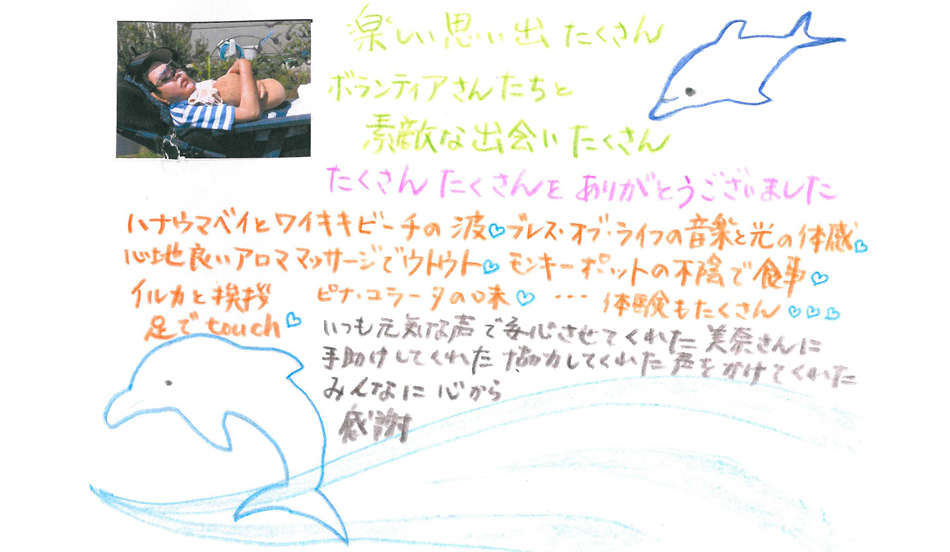 楽しい思い出 たくさん
ボランティアさんたちと
素敵な出会い たくさん
たくさん たくさんを ありがとうございました
ハナウマベイとワイキキビーチの波♡ブレス・オブ・ライフの音楽と光の体感♡
心地良いアロママッサージでウトウト♡ モンキーポットの木陰で食事♡
イルカと挨拶 ピナ・コラータの味♡ ・・・ 体験もたくさん♡♡♡
足でtouch♡
いつも元気な声で安心させてくれた 美奈さんに
手助けしてくれた 協力してくれた 声をかけてくれた
みんなに 心から
感謝